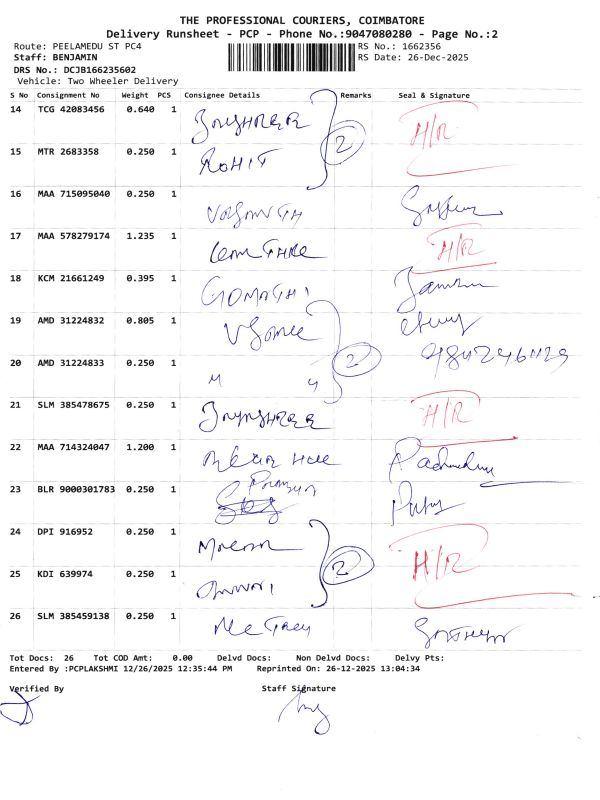 THE PROFESSIONAL COURIERS, COIMBATORE
Delivery Runsheet - PCP - Phone No.:9047080280 - Page No.:2
Route: PEELAMEDU ST PC4 RS No.: 1662356
Staff: BENJAMIN RS Date: 26-Dec-2025
DRS No.: DCJB166235602
Vehicle: Two Wheeler Delivery
S No Consignment No Weight PCS Consignee Details Remarks Seal & Signature
14 TCG 42083456 0.640 1 2 H/R
15 MTR 2683358 0.250 1 ROHIT
16 MAA 715095040 0.250 1
17 MAA 578279174 1.235 1 H/R
18 KCM 21661249 0.395 1 GOMATHI
19 AMD 31224832 0.805 1 2
20 AMD 31224833 0.250 1
21 SLM 385478675 0.250 1 H/R
22 MAA 714324047 1.200 1
23 BLR 9000301783 0.250 1
24 DPI 916952 0.250 1 2 H/R
25 KDI 639974 0.250 1
26 SLM 385459138 0.250 1
Tot Docs: 26 Tot COD Amt: 0.00 Delvd Docs: Non Delvd Docs: Delvy Pts:
Entered By :PCPLAKSHMI 12/26/2025 12:35:44 PM Reprinted On: 26-12-2025 13:04:34
Verified By Staff Signature